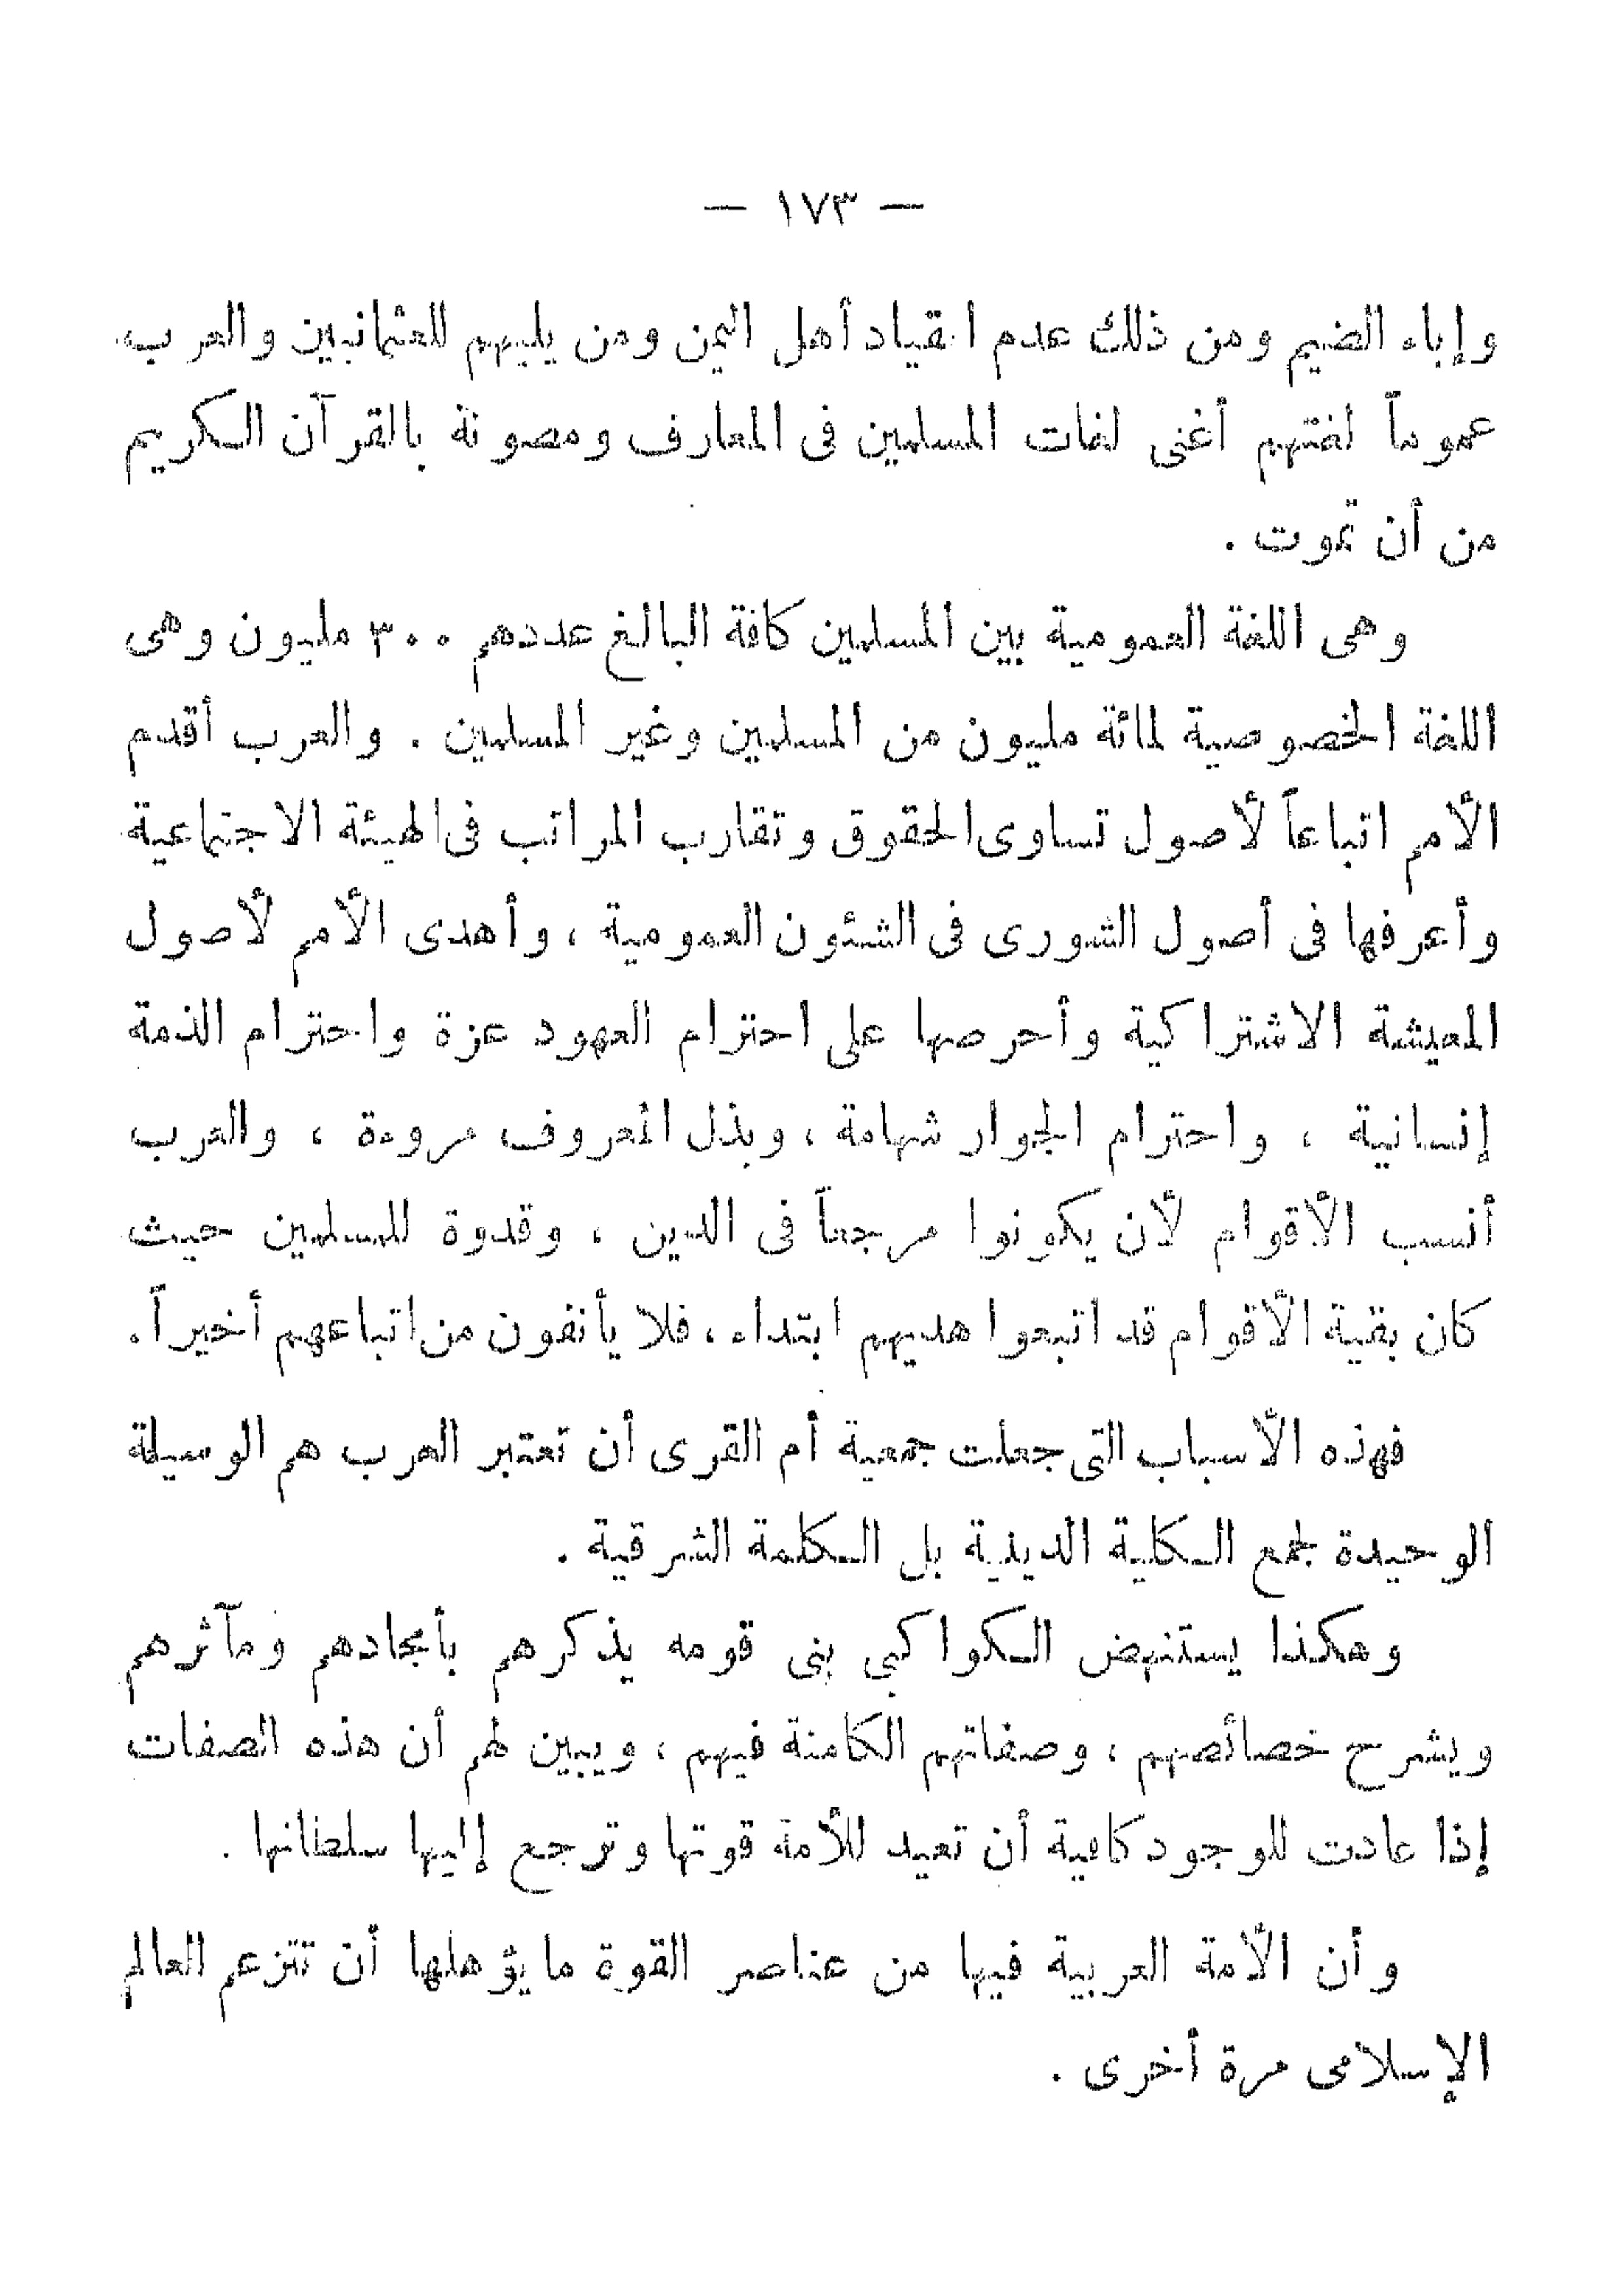 — ١٧٣ —
وإباء الضيم ومن ذلك عدم انقياد أهل اليمن ومن يليهم للعثمانيين والعرب
عموماً لغتهم أغنى لغات المسلمين فى المعارف ومصونة بالقرآن الكريم
من أن تموت .
وهى اللغة العمومية بين المسلمين كافة البالغ عددهم ٣٠٠ مليون وهى
اللغة الخصوصية لمائة مليون من المسلمين وغير المسلمين . والعرب أقدم
الأمم اتباعاً لأصول تساوى الحقوق وتقارب المراتب فى الهيئة الاجتماعية
وأعرفها فى أصول الشورى فى الشئون العمومية ، وأهدى الأمم لأصول
المعيشة الاشتراكية وأحرصها على احترام العهود عزة واحترام الذمة
إنسانية ، واحترام الجوار شهامة ، وبذل المعروف مروءة ، والعرب
أنسب الأقوام لأن يكونوا مرجعاً فى الدين ، وقدوة للمسلمين حيث
كان بقية الأقوام قد اتبعوا هديهم ابتداء ، فلا يأنفون من اتباعهم أخيراً .
فهذه الأسباب التى جعلت جمعية أم القرى أن تعتبر العرب هم الوسيلة
الوحيدة لجمع الكلية الدينية بل الكلمة الشرقية .
وهكذا يستنهض الكواكبى بنى قومه يذكرهم بأمجادهم ومآثرهم
ويشرح خصائصهم ، وصفاتهم الكامنة فيهم ، ويبين لهم أن هذه الصفات
إذا عادت للوجود كافية أن تعيد للأمة قوتها وترجع إليها سلطانها .
وأن الأمة العربية فيها من عناصر القوة ما يؤهلها أن تتزعم العالم
الإسلامى مرة أخرى .